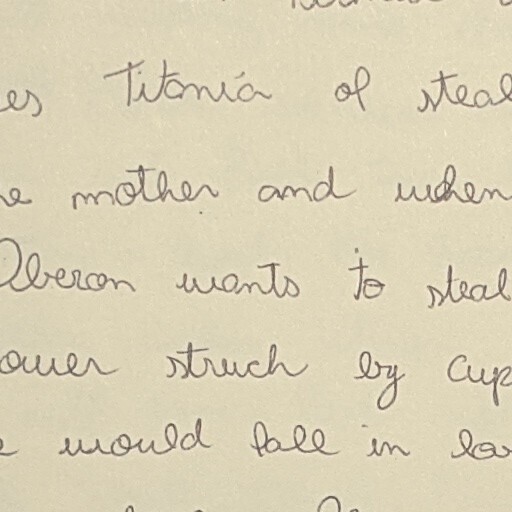 es Titania of steal
e mother and when
Oberon wants to steal
ower struck by Cup
e would fall in lo